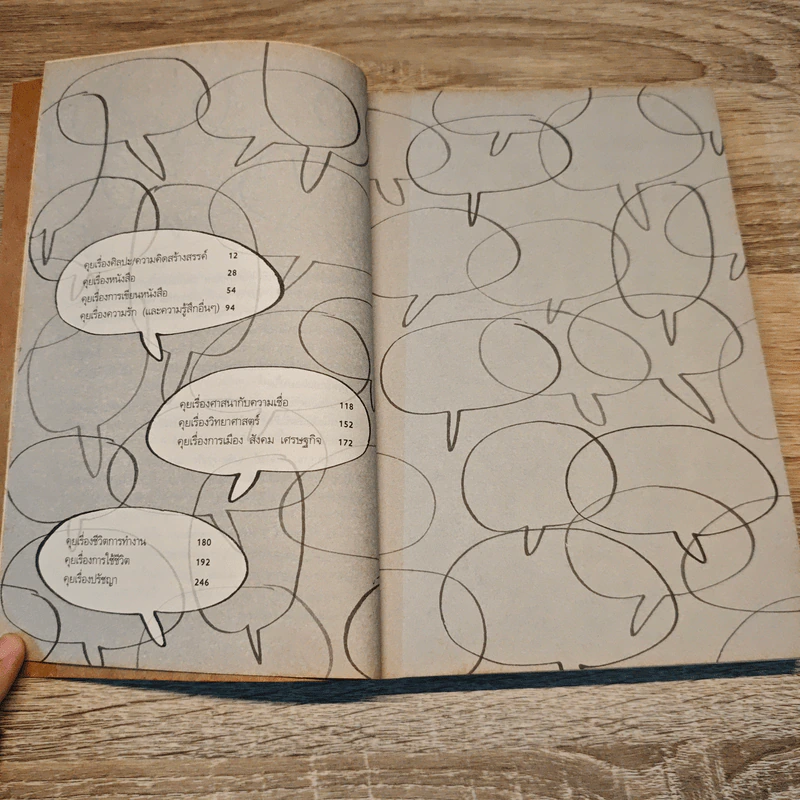 คุยเรื่องศิลปะ/ความคิดสร้างสรรค์ 12
คุยเรื่องหนังสือ 28
คุยเรื่องการเขียนหนังสือ 54
คุยเรื่องความรัก (และความรู้สึกอื่นๆ) 94
คุยเรื่องศาสนากับความเชื่อ 118
คุยเรื่องวิทยาศาสตร์ 152
คุยเรื่องการเมือง สังคม เศรษฐกิจ 172
คุยเรื่องชีวิตการทำงาน 180
คุยเรื่องการใช้ชีวิต 192
คุยเรื่องปรัชญา 246